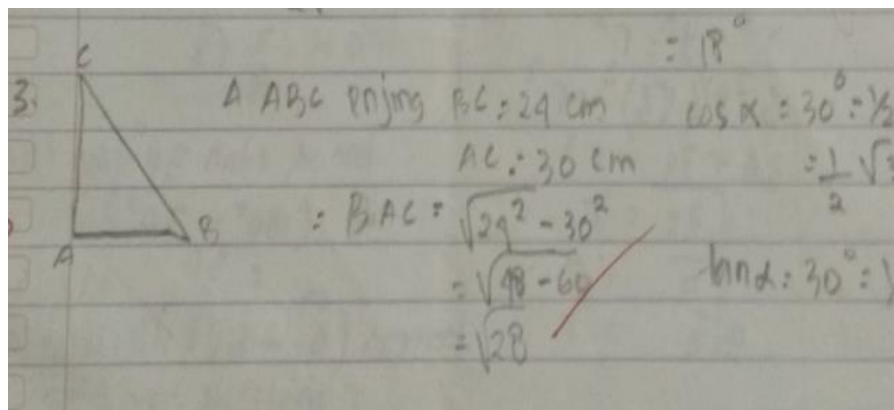 = 18°
3.
C
A
B
Δ ABC pnjng BC = 24 cm
AC = 30 cm
= BAC = √24² - 30²
= √48 - 60
= √28
cos α = 30° = ½
= 1/2 √3
tan α = 30° =